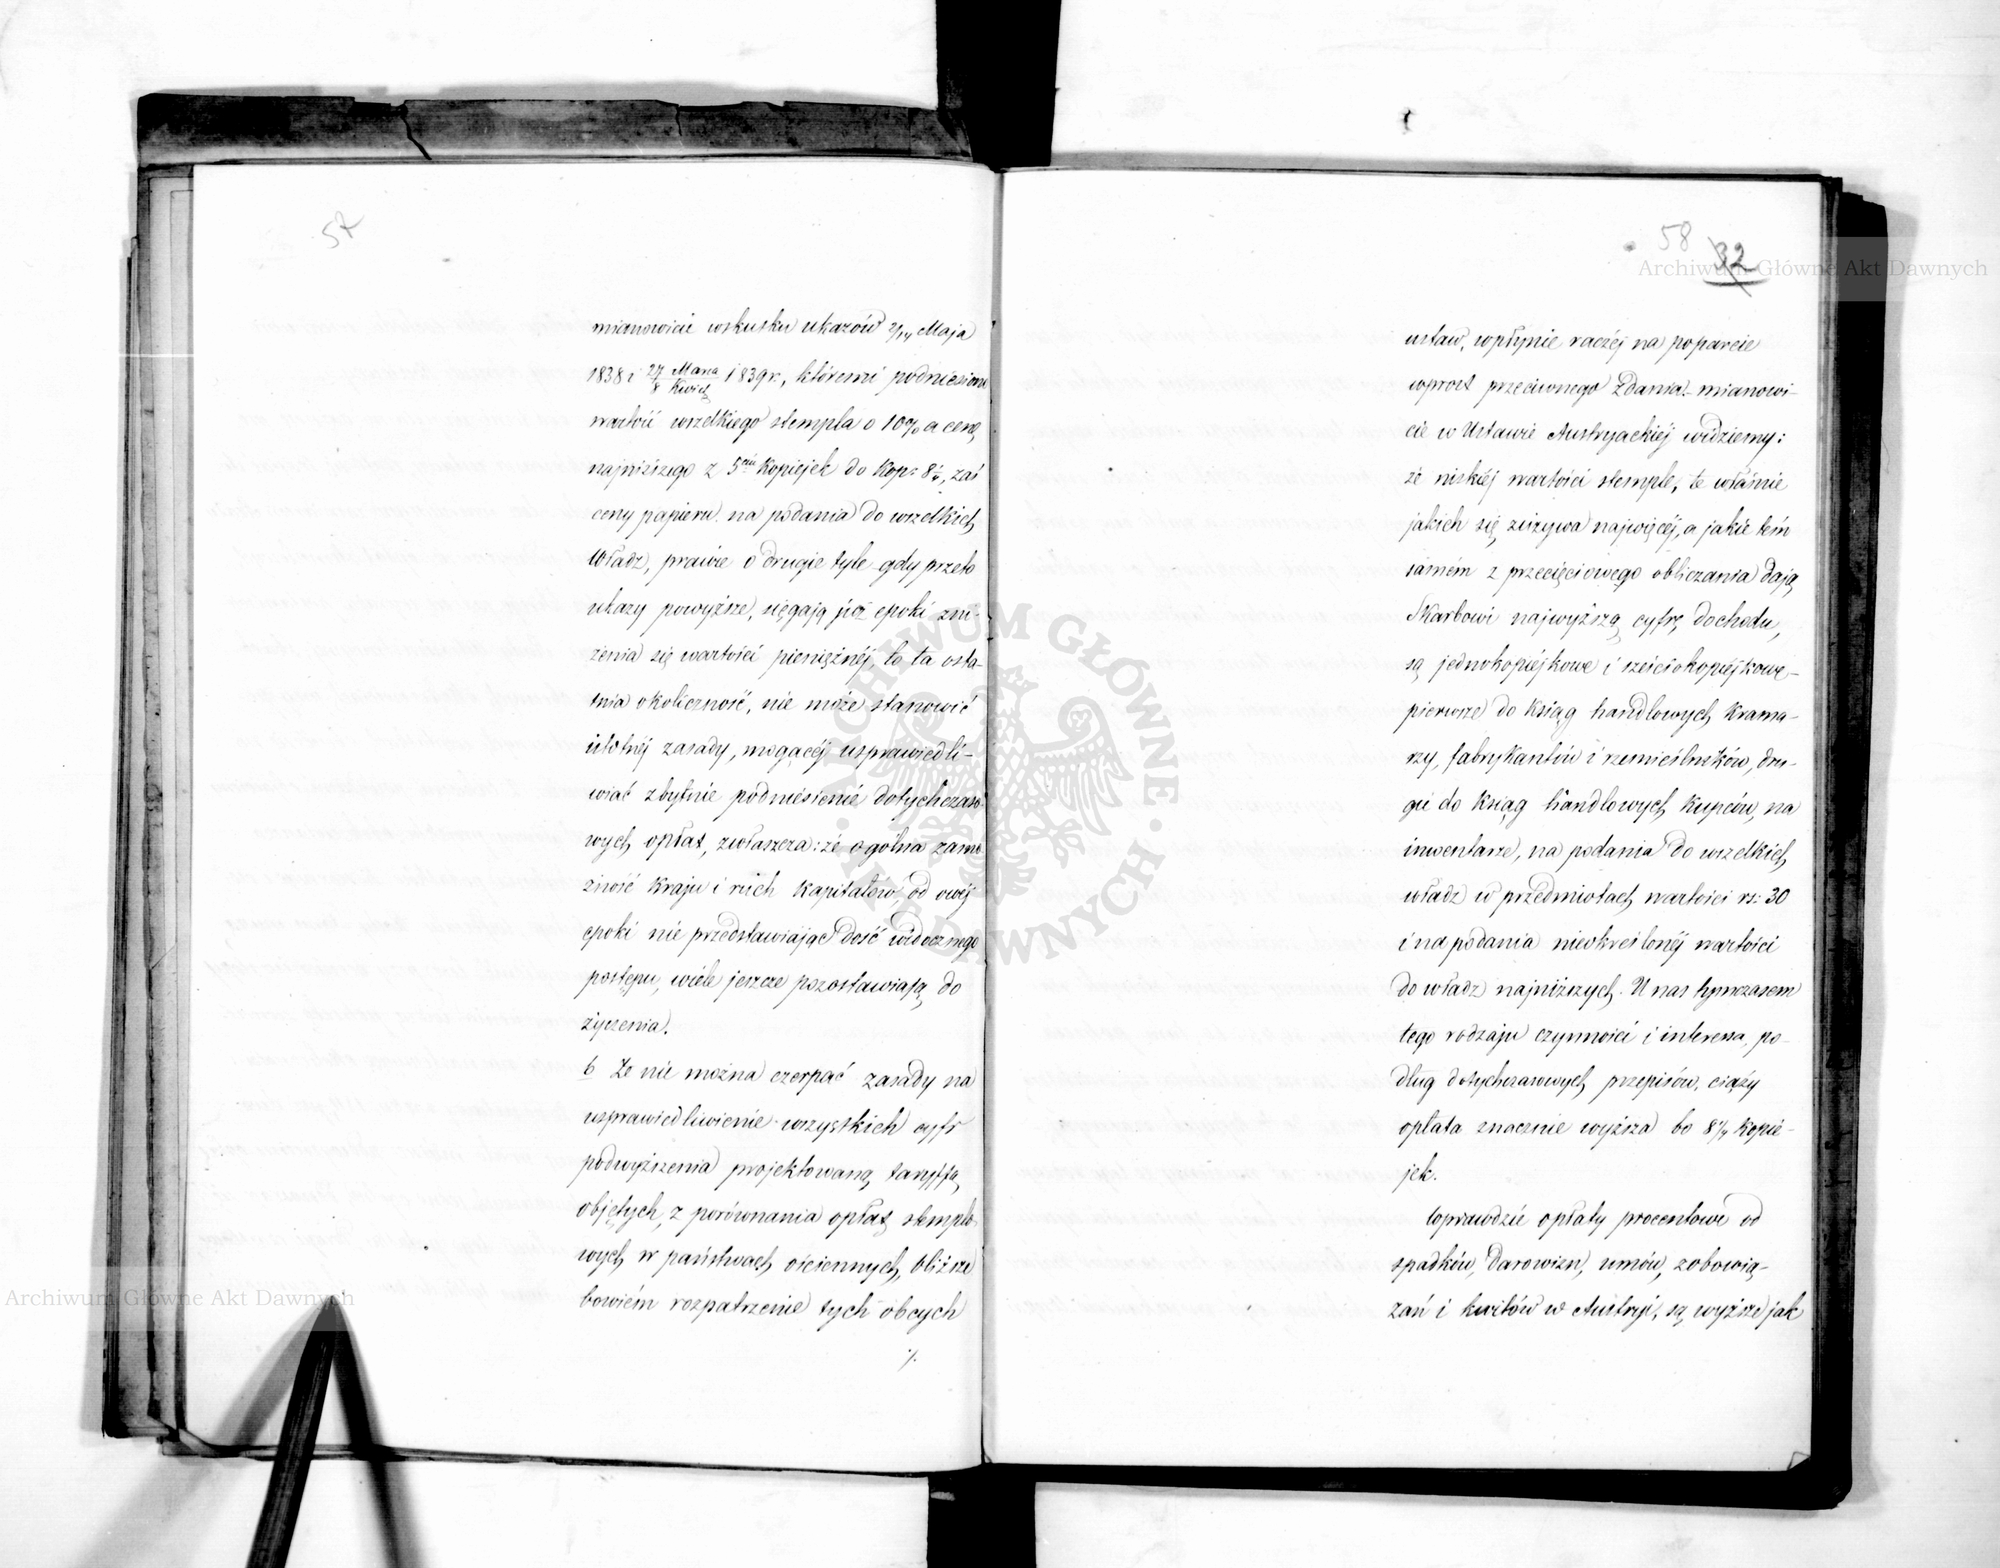 57
mianowicie wskutku ukazów 2/14 Maja
1838 i 27 Marca / 8 Kwiet. 1839 r., któremi podniesiono
wartość wszelkiego stempla o 10% a cenę
najniższego z 5ciu Kopiejek do Kop: 8 1/4, zaś
ceny papieru na podania do wszelkich
Władz, prawie o drugie tyle gdy przeto
ukazy powyższe, sięgają już epoki zni-
żenia się wartości pieniężnéj, to ta osta-
tnia okoliczność, nie może stanowić
istotnéj zasady, mogącéj usprawiedli-
wiać zbytnie podniesienie dotychczaso-
wych opłat, zwłaszcza: że ogólna zamo-
żność Kraju i ruch Kapitałów od owéj
epoki nie przedstawiając dość widocznego
postępu, wiele jeszcze pozostawiają do
życzenia.
b Że nie można czerpać zasady na
usprawiedliwienie wszystkich cyfr
podwyższenia projektowaną taryffą
objętych, z porównania opłat stemplo-
wych w państwach ościennych, bliższe
bowiém rozpatrzenie tych obcych
./.
58
32
ustaw, wpłynie raczéj na poparcie
wprost przeciwnego Zdania.- mianowi-
cie w Ustawie Austryackiéj widziemy:
że niskiéj wartości stemple, te właśnie
jakich się zużywa najwięcéj, a jakie tém
samém z przecięciowego obliczania dają
Skarbowi najwyższą cyfrę dochodu,
są jednokopiéjkowe i sześciokopiéjkowe-
pierwsze do Ksiąg handlowych Krama-
rzy, fabrykantów i rzemieślników, dru-
gie do Ksiąg handlowych Kupców, na
inwentarze, na podania do wszelkich
władz w przedmiotach wartości rs: 30
i na podania nieokreślonéj wartości
do władz najniższych. U nas tymczasem
tego rodzaju czynności i interessa, po-
dług dotychczasowych przepisów, ciąży
opłata znacznie wyższa bo 8 1/4 Kopie-
jek.
Wprawdzie opłaty procentowe od
spadków, darowizn, umów, zobowią-
zań i kwitów w Austryi, są wyższe jak
Archiwum Główne Akt Dawnych
Archiwum Główne Akt Dawnych
ARCHIWUM GŁÓWNE AKT DAWNYCH